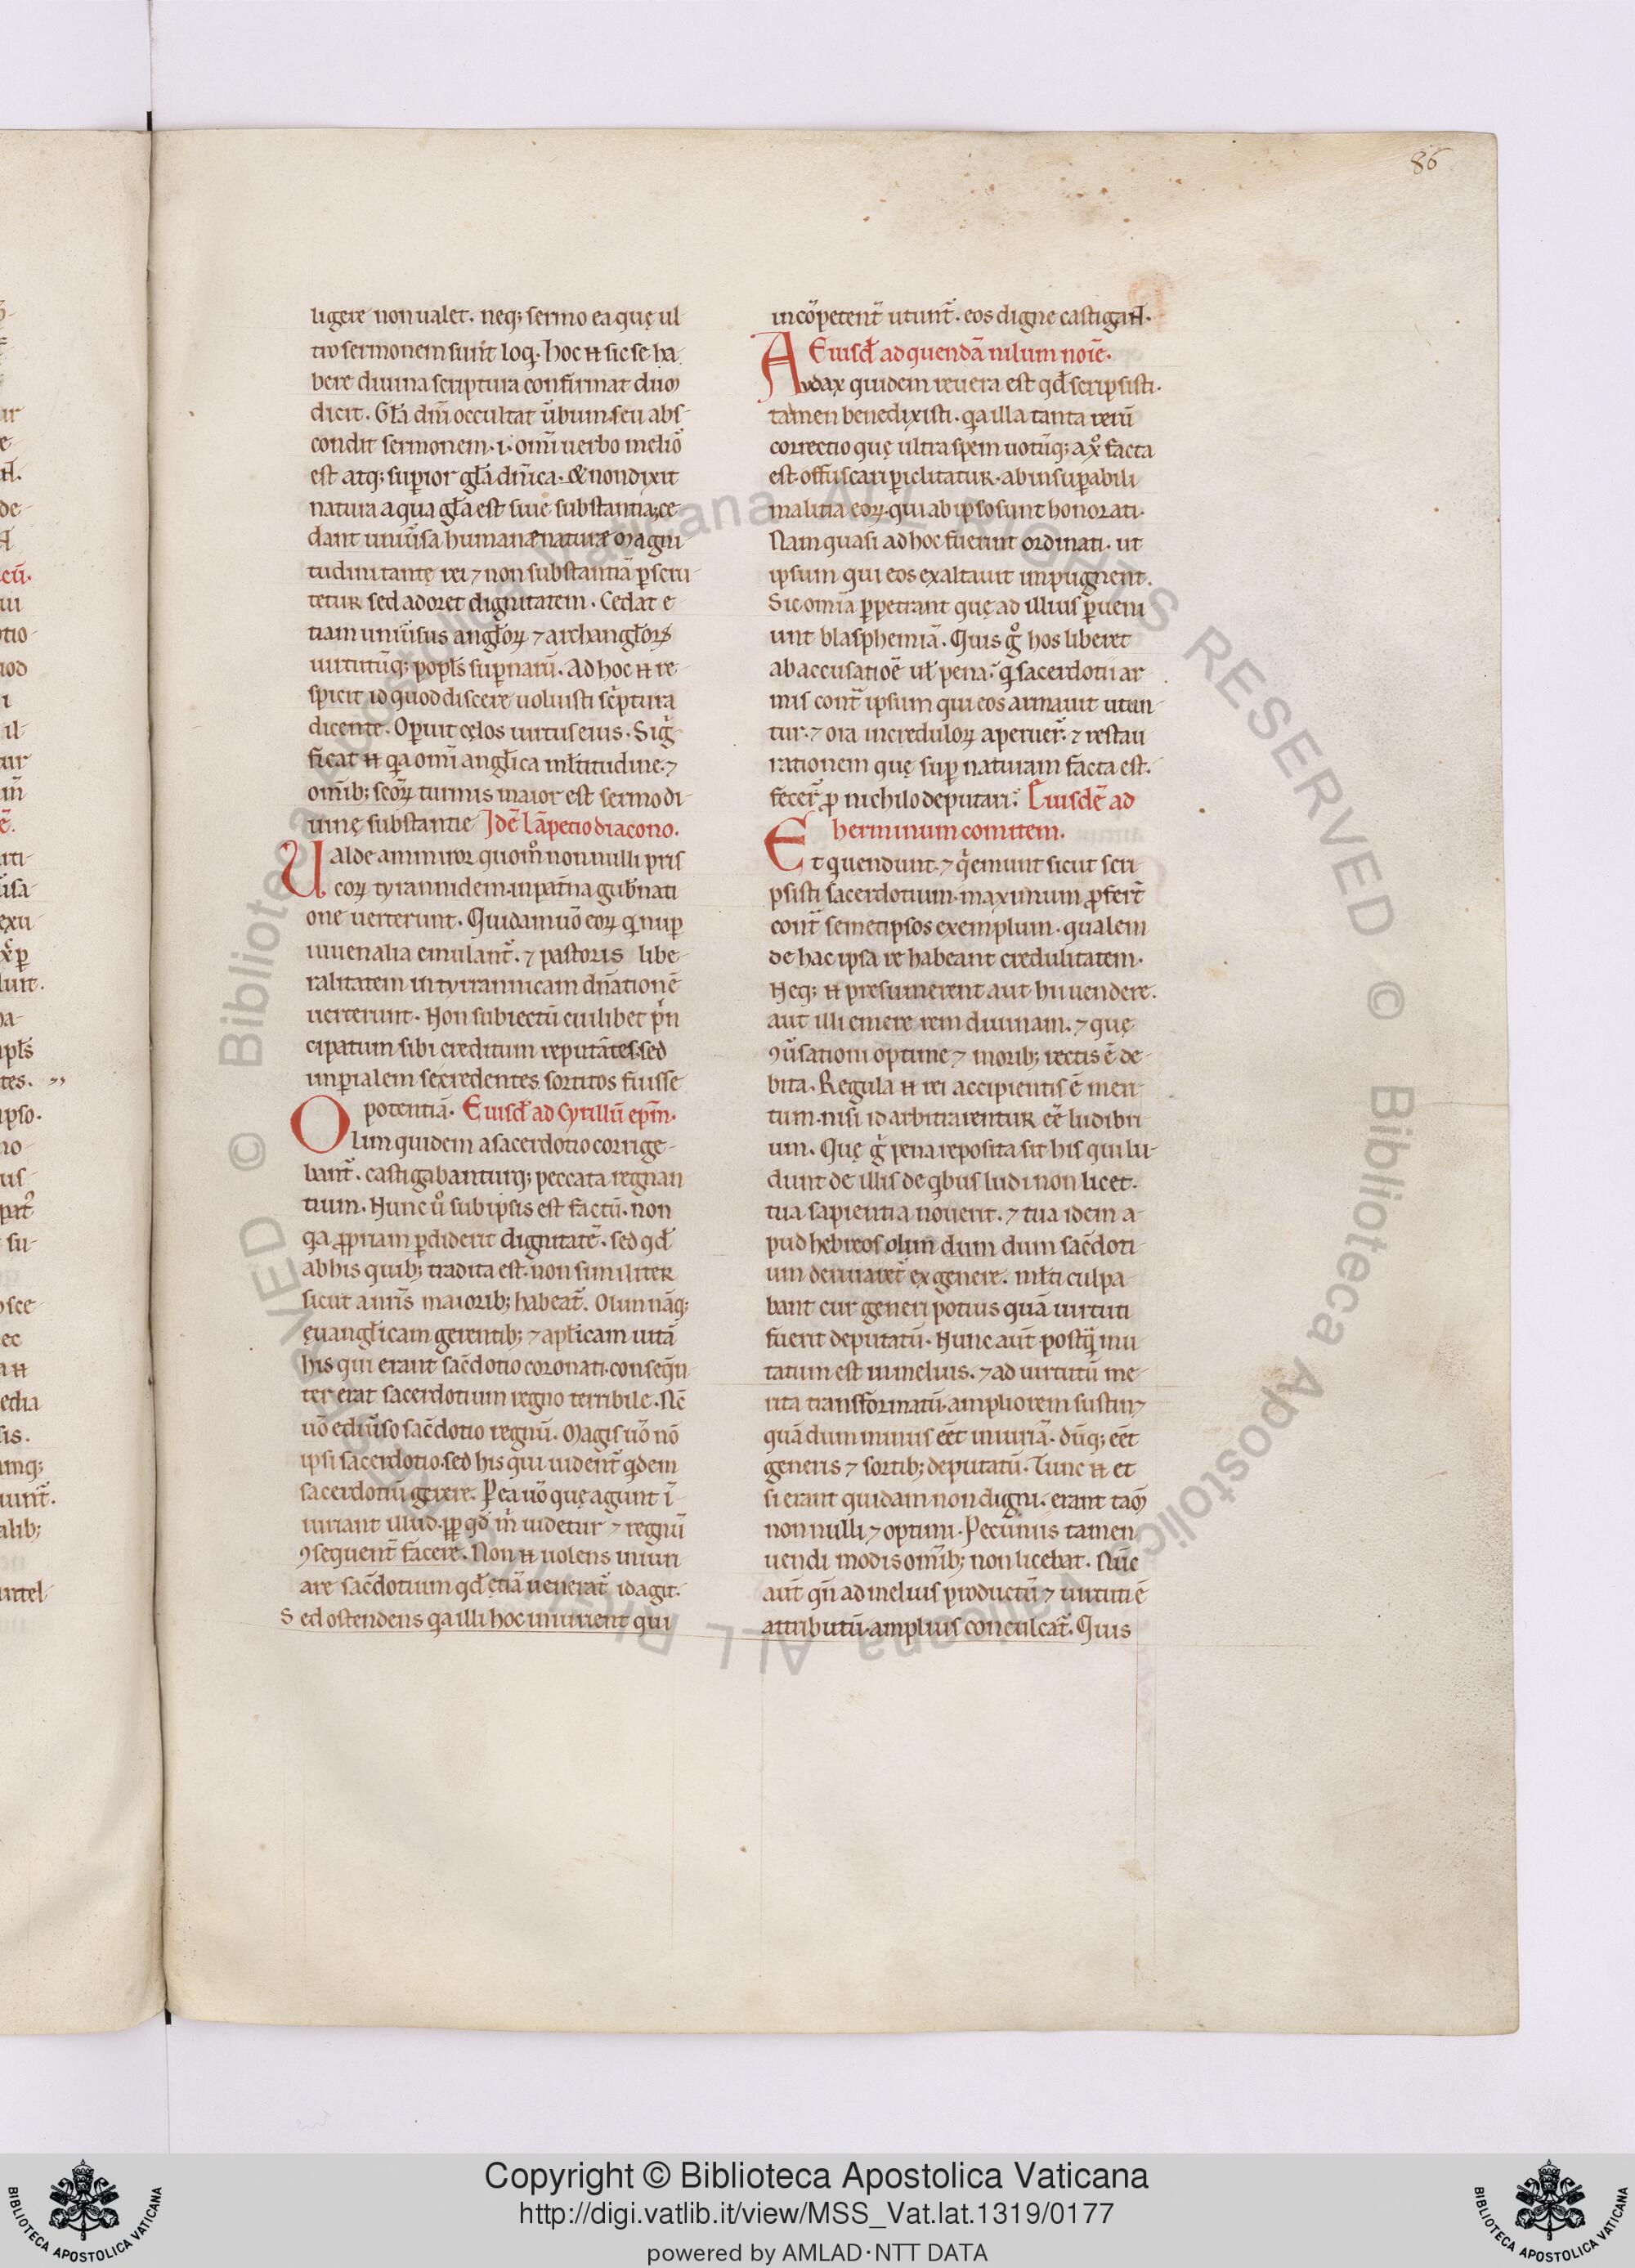 86
ligere non ualet. neq; sermo ea quę ul
tro sermonem sunt loq. hoc ꞇ̄ sic se ha
bere diuina scriptura confirmat duo
dicit. Gła dn̄i occultat ūbum. seu abs-
condit sermonem. i. omī uerbo melior̄
est atq; supior gła dn̄ica. & non dixit
natura a qua gła est siue substantia; ce-
dant uniūsa humanę naturę magni
tudini tantę rei ⁊ non substantiā pscru-
tetur sed adoret dignitatem. Cedat e
tiam uniūsus angłoꝝ ⁊ archangłoꝝ
uirtutūq; popłs supnarū. Ad hoc ꞇ̄ re-
spicit id quod discere uoluisti sc̄ptura
dicente. Opuit cęlos uirtus eius. Siḡ
ficat ꞇ̄ qa omī angłica młtitudine. ⁊
omīb; sc̄oꝝ turmis maior est sermo di-
uinę substantie Idē Lāpetio diacono.
Ualde ammiror quom̄ non nulli pris
eoꝝ tyrannidem. in pat̄na gub̄nati
one uerterunt. Quidam uō eoꝝ q nup
iuuenalia emulant̄. ⁊ pastoris libe-
ralitatem in tyrannicam dn̄ationē
uerterunt. Non subiectū cuilibet p̄n
cipatum sibi creditum reputātes. sed
impialem se credentes sortitos fuisse
potentiā. Eiusd̄ ad Cyrillū epm̄.
Olim quidem a sacerdotio corrige-
bant̄. castigabanturq; peccata regnan
tium. Nunc ū sub ipsis est factū. non
qa ꝓpriam pdiderit dignitatē. sed qd̄
ab his quib; tradita est. non similiter
sicut a nr̄is maiorib; habeat̄. Olim nāq;
ęuangłicam gerentib; ⁊ apłicam uitā
his qui erant sac̄dotio coronati. conseqn̄
ter erat sacerdotium regno terribile. Nc̄
uō e diūso sac̄dotio regnū. Magis uō nō
ipsi sacerdotio. sed his qui uident̄ qdem
sacerdotiū gerere. P ea uō quę agunt ī-
iuriant illud. ꝓp qd̄ m̄ uidetur ⁊ regnū
ꝯsequent̄ facere. Non ꞇ̄ uolens iniuri
are sac̄dotium qd̄ etiā uenerat̄ id agit.
Sed ostendens qa illi hoc iniurient qui
incōpetent̄ utunt̄. eos digne castigaꞇ̄.
Eiusd̄ ad quendā nilum noīe.
Audax quidem reuera est qd̄ scripsisti.
tamen benedixisti. qa illa tanta rerū
correctio quę ultra spem uotūq; a xp̄o facta
est. offuscari piclitatur. ab insupabili
malitia eoꝝ. qui ab ipso sunt honorati.
Nam quasi ad hoc fuerint ordinati. ut
ipsum qui eos exaltauit impugnent.
Sic omīa ppetrant quę ad illius pueni
unt blasphemiā. Quis g̊ hos liberet
ab accusatioē uł pena. q sacerdotii ar
mis cont̄ ipsum qui eos armauit utun-
tur. ⁊ ora increduloꝝ aperuer̄. ⁊ restau
rationem quę sup naturam facta est.
fecer̄ ꝓ nichilo deputari. Eiusdē ad
herminum comitem.
Et qui uendunt. ⁊ qi emunt sicut scri
psisti sacerdotium. maximum ꝓfert̄
cont̄ semetipsos exemplum. qualem
de hac ipsa re habeant credulitatem.
Neq; ꞇ̄ presumerent aut hi uendere.
aut illi emere rem diuinam. ⁊ quę
ꝯūsationi optime ⁊ morib; rectis ē de-
bita. Regula ꞇ̄ rei accipientis ē meri-
tum. nisi id arbitrarentur eē ludibri-
um. Quę g̊ pena reposita sit his qui lu-
dunt de illis de qbus ludi non licet.
tua sapientia nouerit. ⁊ tua idem a-
pud hebreos olim dum dum sac̄doti-
um deriuaret̄ ex genere. młti culpa
bant cur generi potius quā uirtuti
fuerit deputatū. Nunc aūt postq̄ mu
tatum est in melius. ⁊ ad uirtutū me-
rita transformatū. ampliorem sustin&
quā dum minus eēt iniuriā. dūq; eēt
generis ⁊ sortib; deputatū. Tunc ꞇ̄ et
si erant quidam non digni. erant tam̄
non nulli ⁊ optimi. Pecuniis tamen
uendi modis omīb; non licebat. Nūc
aūt qn̄ ad melius productū ⁊ uirtuti ē
attributū. amplius conculcat̄. Quis
Copyright © Biblioteca Apostolica Vaticana
http://digi.vatlib.it/view/MSS_Vat.lat.1319/0177
powered by AMLAD·NTT DATA